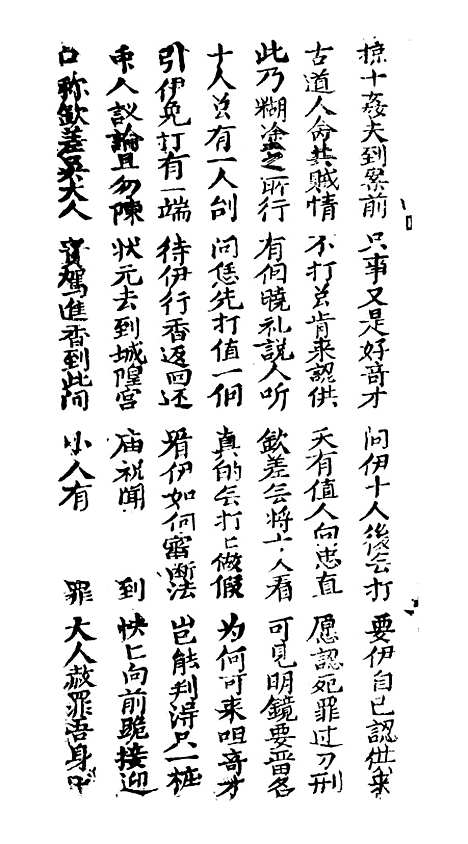 掠十姦夫到案前 只事又是好奇才 问伊十人後会打 要伊自已認供来
古道人命共賊情 不打总肯来認供 天有值人向忠直 愿認死罪过刀刑
此乃糊塗之所行 有個曉礼説人听 欽差会将十人看 可見明鏡要留名
十人总有一人刣 问恁先打值一個 真的会打匕做假 为何可来呾奇才
引伊免打有一端 待伊行香返回还 看伊如何審断法 岂能判得只一桩
本人議論且勿陳 状元去到城隍宫 庙祝闻到 快匕向前跪接迎
口称欽差吴大人 寳駕進香到此间 小人有罪 大人赦罪吾身